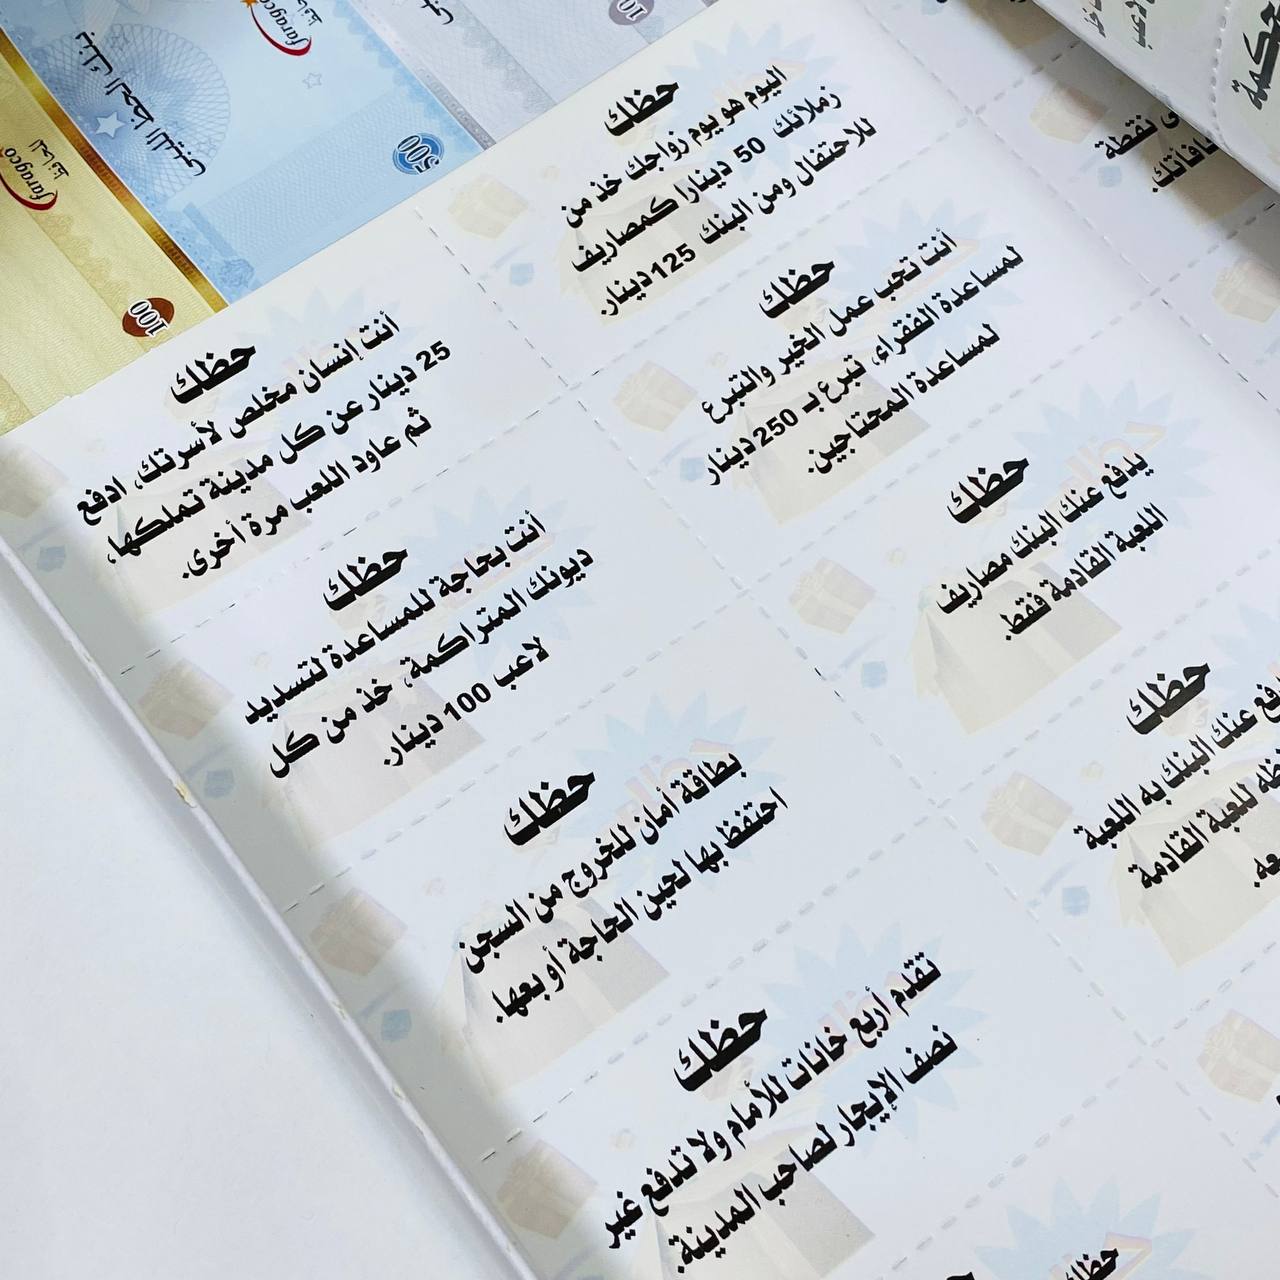 حظك
اليوم هو يوم زواجك خذ من
زملائك 50 دينارا كمصاريف
للاحتفال ومن البنك 125 دينار.
حظك
أنت تحب عمل الخير والتبرع
لمساعدة الفقراء، تبرع بـ 250 دينار
لمساعدة المحتاجين.
حظك
يدفع عنك البنك مصاريف
اللعبة القادمة فقط.
حظك
فع عنك البنك به اللعبة
ظه للعبة القادمة
عه.
حظك
أنت إنسان مخلص لأسرتك، ادفع
25 دينار عن كل مدينة تملكها،
ثم عاود اللعب مرة أخرى.
حظك
أنت بحاجة للمساعدة لتسديد
ديونك المتراكمة، خذ من كل
لاعب 100 دينار.
حظك
بطاقة أمان للخروج من السجن
احتفظ بها لحين الحاجة أو بعها.
حظك
تقدم أربع خانات للأمام ولا تدفع غير
نصف الإيجار لصاحب المدينة.
حظك
نقطة
حكمة
بنك الحظ الليبي
500
faragco
الحافظ
100
faragco
الحافظ